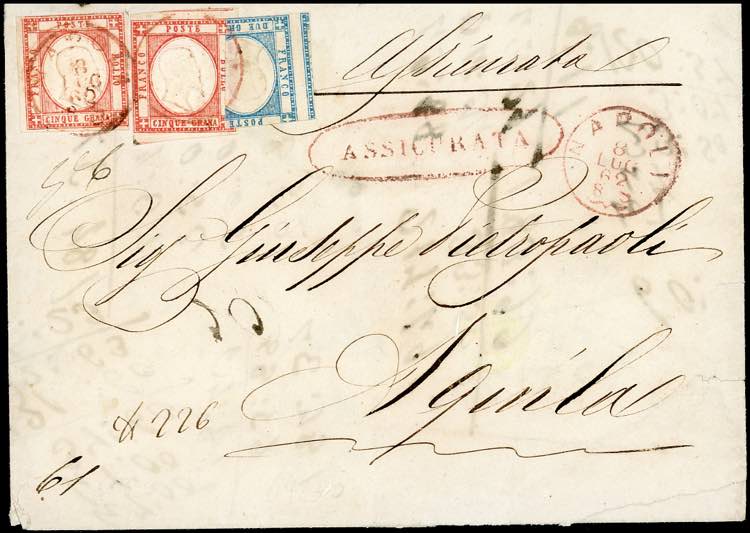 POSTE
FRANCO
BOLLO
CINQUE GRANA
POSTE
FRANCO
BOLLO
CINQUE GRANA
DUE GR
FRANCO
POSTE
Assicurata
ASSICURATA
NAPOLI
8
LUG
62
Sigr Giuseppe Pietropaoli
Aquila
226
61